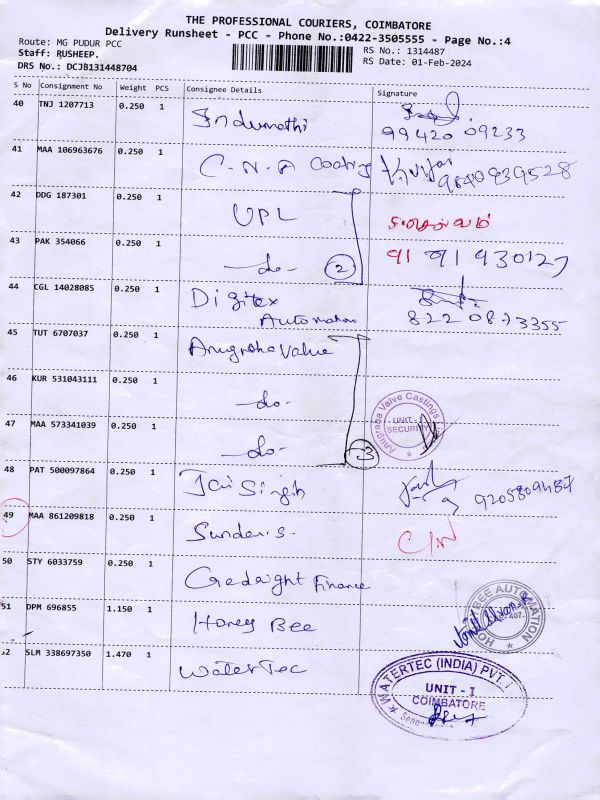 THE PROFESSIONAL COURIERS, COIMBATORE
Delivery Runsheet - PCC - Phone No.:0422-3505555 - Page No.:4
Route: MG PUDUR PCC
RS No.: 1314487
Staff: RUSHEEP.
RS Date: 01-Feb-2024
DRS No.: DCJB131448704
S No Consignment No Weight PCS Consignee Details Signature
40 TNJ 1207713 0.250 1 Indumathi
99420 09233
41 MAA 106963676 0.250 1 C.N.A Coating
9840939528
42 DDG 187301 0.250 1 UPL
43 PAK 354066 0.250 1 -do- 2 91 91 930127
44 CGL 14028085 0.250 1 Digitex
Automation 822 0873355
45 TUT 6707037 0.250 1 Anugraha Value
46 KUR 531043111 0.250 1 -do-
47 MAA 573341039 0.250 1 -do- 3
Anugraha Valve Castings
UNIT -
SECURITY
48 PAT 500097864 0.250 1 Jai Singh
49 MAA 861209818 0.250 1 Sunder.s. C/N
50 STY 6033759 0.250 1 Credright Finance
51 DPM 696855 1.150 1 Honey Bee
AUTOMATION
52 SLM 338697350 1.470 1 WaterTec
WATERTEC (INDIA) PVT.
UNIT - I
COIMBATORE